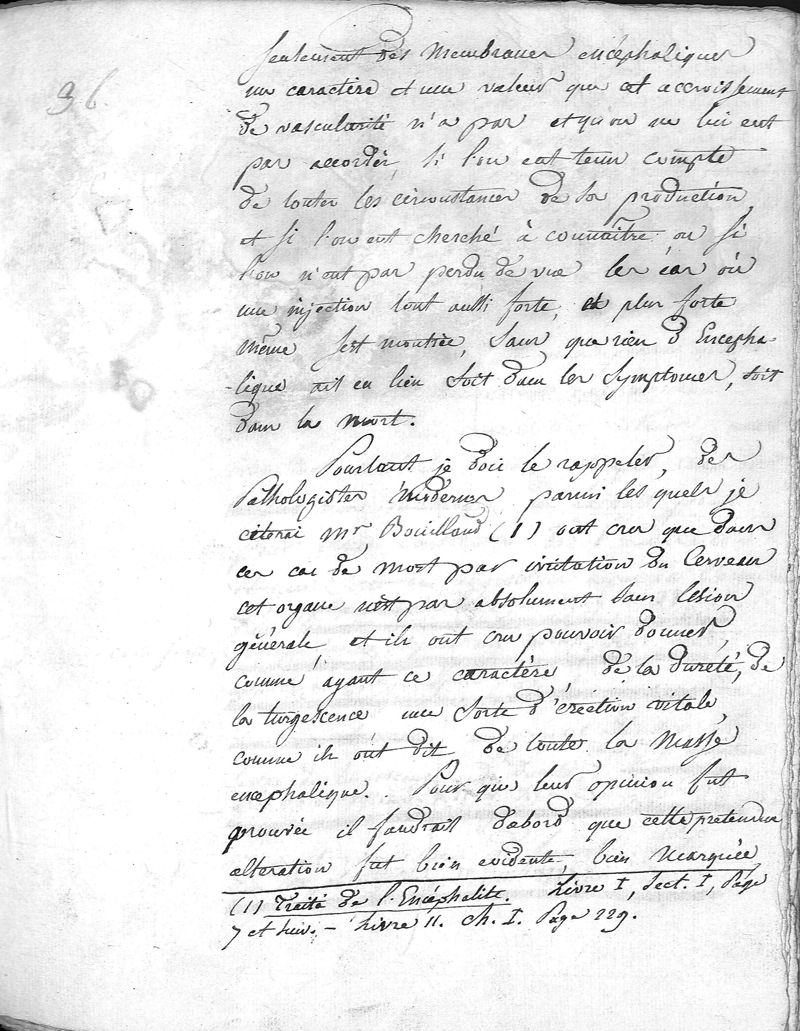 96
seulement des Membranes encéphaliques
un caractère et une valeur que cet accroissement
de vascularité n'a pas et qu'on ne lui eut
pas accordé, si l'on eut tenu compte
de toutes les circonstances de sa production,
et si l'on eut cherché à connaître ou si
l'on n'eut pas perdu de vue les cas où
une injection tout aussi forte, et plus forte
même s'est montrée, sans que rien d'Encépha-
-lique ait eu lieu soit dans les symptomes, soit
dans la mort.
Pourtant je dois le rappeler, des
Pathologistes modernes parmi les quels je
citerai Mr Bouillaud (1) ont cru que dans
ces cas de mort par irritation du Cerveau
cet organe n'est pas absolument sans lésion
générale et ils ont cru pouvoir donner,
comme ayant ce caractère, de la dureté, de
la turgescence une sorte d'érection vitale,
comme ils ont dit de toute la Masse
encéphalique. Pour que leur opinion fut
prouvée il faudrait d'abord que cette prétendue
altération fut bien evidente, bien marquée,
(1) Traité de l'Encéphalite. Livre I, Sect. I, Page
7 et suiv. - Livre II. ch. I. Page 229.